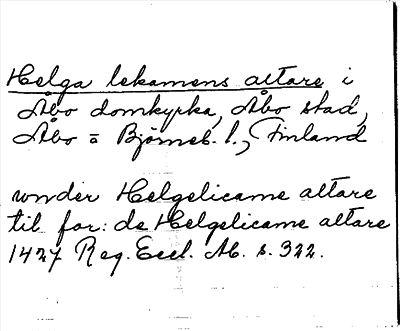 Helga lekamens altare i
Åbo domkyrka, Åbo stad,
Åbo o Björneb. l., Finland
vnder Helgelicame altare
til for: de Helgelicame altare
1427 Reg. Eccl. Ab. s. 322.